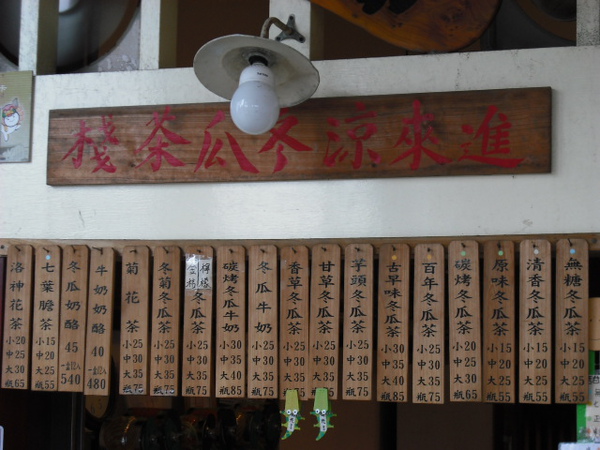 進來涼冬瓜茶棧
無糖冬瓜茶 小15 中20 大25 瓶55
清香冬瓜茶 小15 中20 大25 瓶55
原味冬瓜茶 小15 中20 大25 瓶55
碳烤冬瓜茶 小20 中25 大30 瓶65
百年冬瓜茶 小25 中30 大35 瓶75
古早味冬瓜茶 小30 中35 大40 瓶85
芋頭冬瓜茶 小25 中30 大35 瓶75
甘草冬瓜茶 小25 中30 大35
香草冬瓜茶 小25 中30 大35
冬瓜牛奶 小25 中30 大35 瓶75
碳烤冬瓜牛奶 小30 中35 大40 瓶85
檸檬 金桔 冬瓜茶 小25 中30 大35 瓶75
冬菊冬瓜茶 小25 中30 大35 瓶75
菊花茶 小25 中30 大35 瓶75
牛奶奶酪 40 480
冬瓜奶酪 45 540
七葉膽茶 小15 中20 大25 瓶55
洛神花茶 小20 中25 大30 瓶65